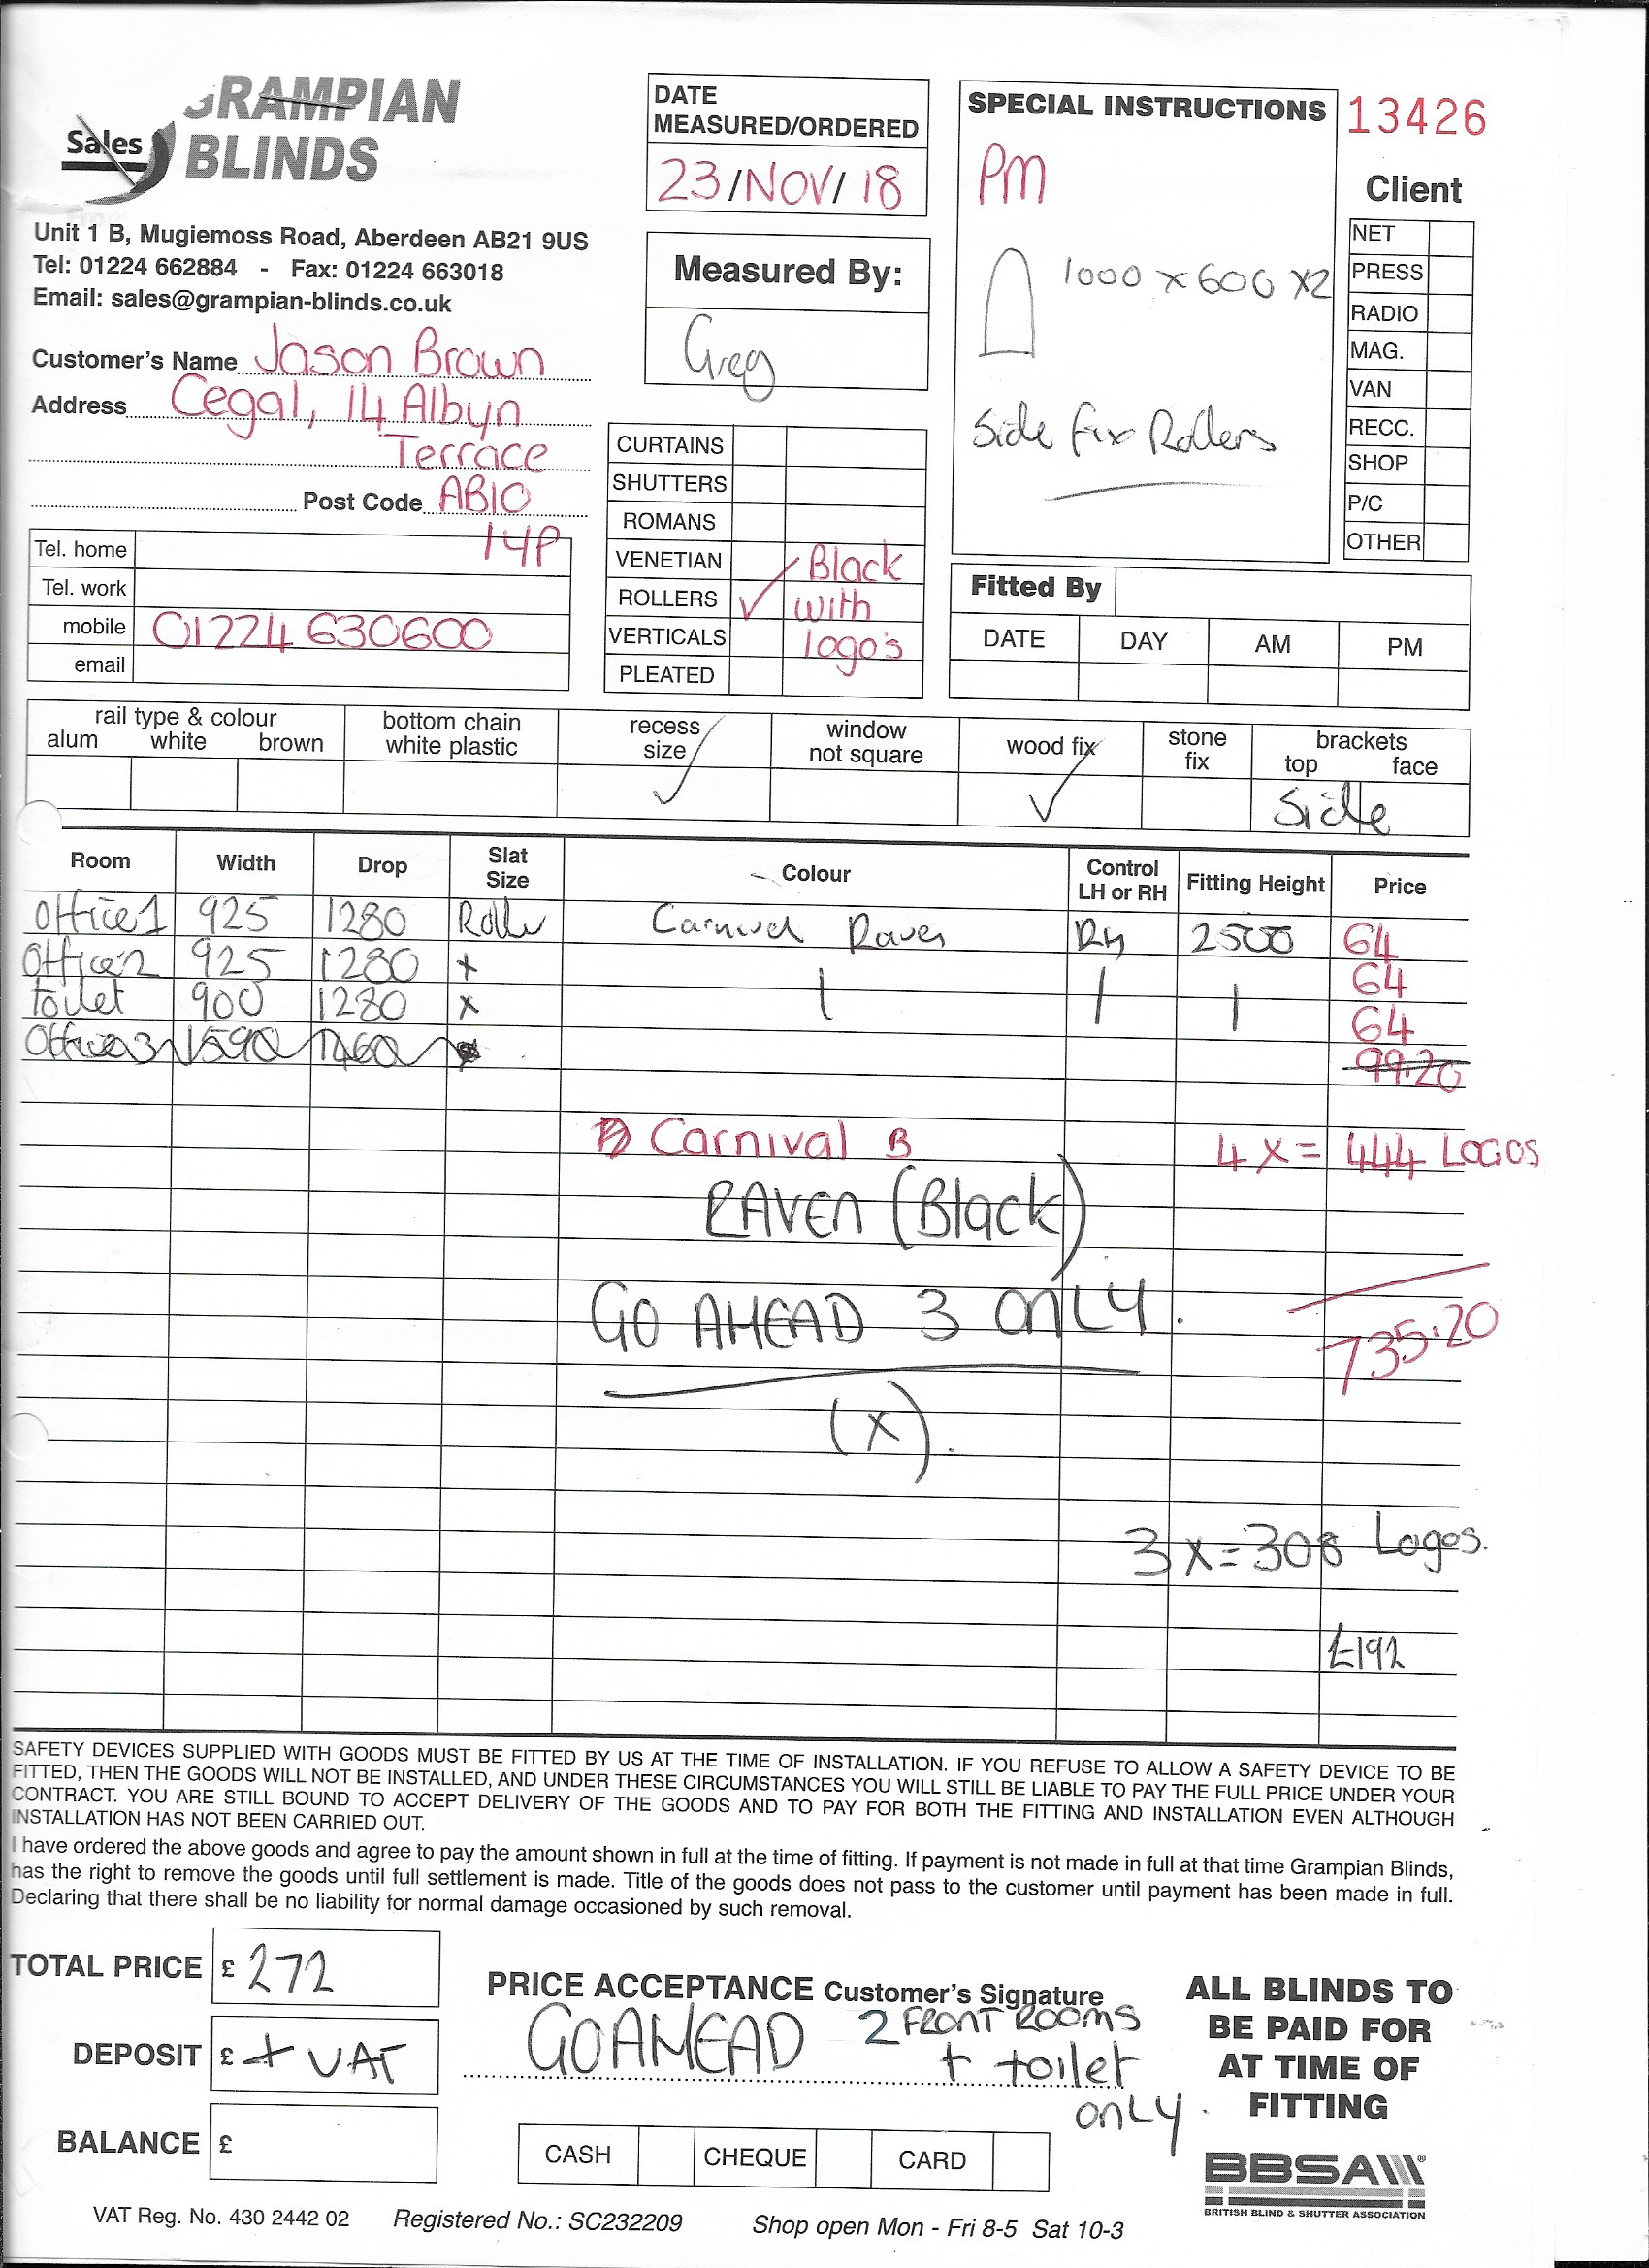 GRAMPIAN
Sales BLINDS
Unit 1 B, Mugiemoss Road, Aberdeen AB21 9US
Tel: 01224 662884 - Fax: 01224 663018
Email: sales@grampian-blinds.co.uk
Customer's Name Jason Brown
Address Cegal, 14 Albyn
Terrace
Post Code AB10
1YP
Tel. home
Tel. work
mobile 01224 630600
email
DATE
MEASURED/ORDERED
23/NOV/18
Measured By:
Greg
CURTAINS
SHUTTERS
ROMANS
VENETIAN Black
ROLLERS ✓ with
VERTICALS logo's
PLEATED
SPECIAL INSTRUCTIONS
PM
1000 x 600 x2
Side fix Rollers
13426
Client
NET
PRESS
RADIO
MAG.
VAN
RECC.
SHOP
P/C
OTHER
Fitted By
DATE DAY AM PM
rail type & colour
alum white brown
bottom chain
white plastic
recess
size ✓
window
not square
wood fix ✓
stone
fix
brackets
top face
Side
Room Width Drop Slat Size Colour Control LH or RH Fitting Height Price
Office 1 925 1280 Roller Carnival Raven RH 2500 64
Office 2 925 1280 + | | | 64
toilet 900 1280 x 64
Office 3 1590 1460 99.20
Carnival B 4 x = 444 LOGOS
RAVEN (Black)
GO AHEAD 3 ONLY.
735.20
(x).
3 x = 308 Logos.
£192
SAFETY DEVICES SUPPLIED WITH GOODS MUST BE FITTED BY US AT THE TIME OF INSTALLATION. IF YOU REFUSE TO ALLOW A SAFETY DEVICE TO BE
FITTED, THEN THE GOODS WILL NOT BE INSTALLED, AND UNDER THESE CIRCUMSTANCES YOU WILL STILL BE LIABLE TO PAY THE FULL PRICE UNDER YOUR
CONTRACT. YOU ARE STILL BOUND TO ACCEPT DELIVERY OF THE GOODS AND TO PAY FOR BOTH THE FITTING AND INSTALLATION EVEN ALTHOUGH
INSTALLATION HAS NOT BEEN CARRIED OUT.
I have ordered the above goods and agree to pay the amount shown in full at the time of fitting. If payment is not made in full at that time Grampian Blinds,
has the right to remove the goods until full settlement is made. Title of the goods does not pass to the customer until payment has been made in full.
Declaring that there shall be no liability for normal damage occasioned by such removal.
TOTAL PRICE £ 272
DEPOSIT £ + VAT
BALANCE £
PRICE ACCEPTANCE Customer's Signature
GOAHEAD 2 FRONT ROOMS
+ toilet
only.
CASH CHEQUE CARD
ALL BLINDS TO
BE PAID FOR
AT TIME OF
FITTING
BBSA
BRITISH BLIND & SHUTTER ASSOCIATION
VAT Reg. No. 430 2442 02 Registered No.: SC232209 Shop open Mon - Fri 8-5 Sat 10-3